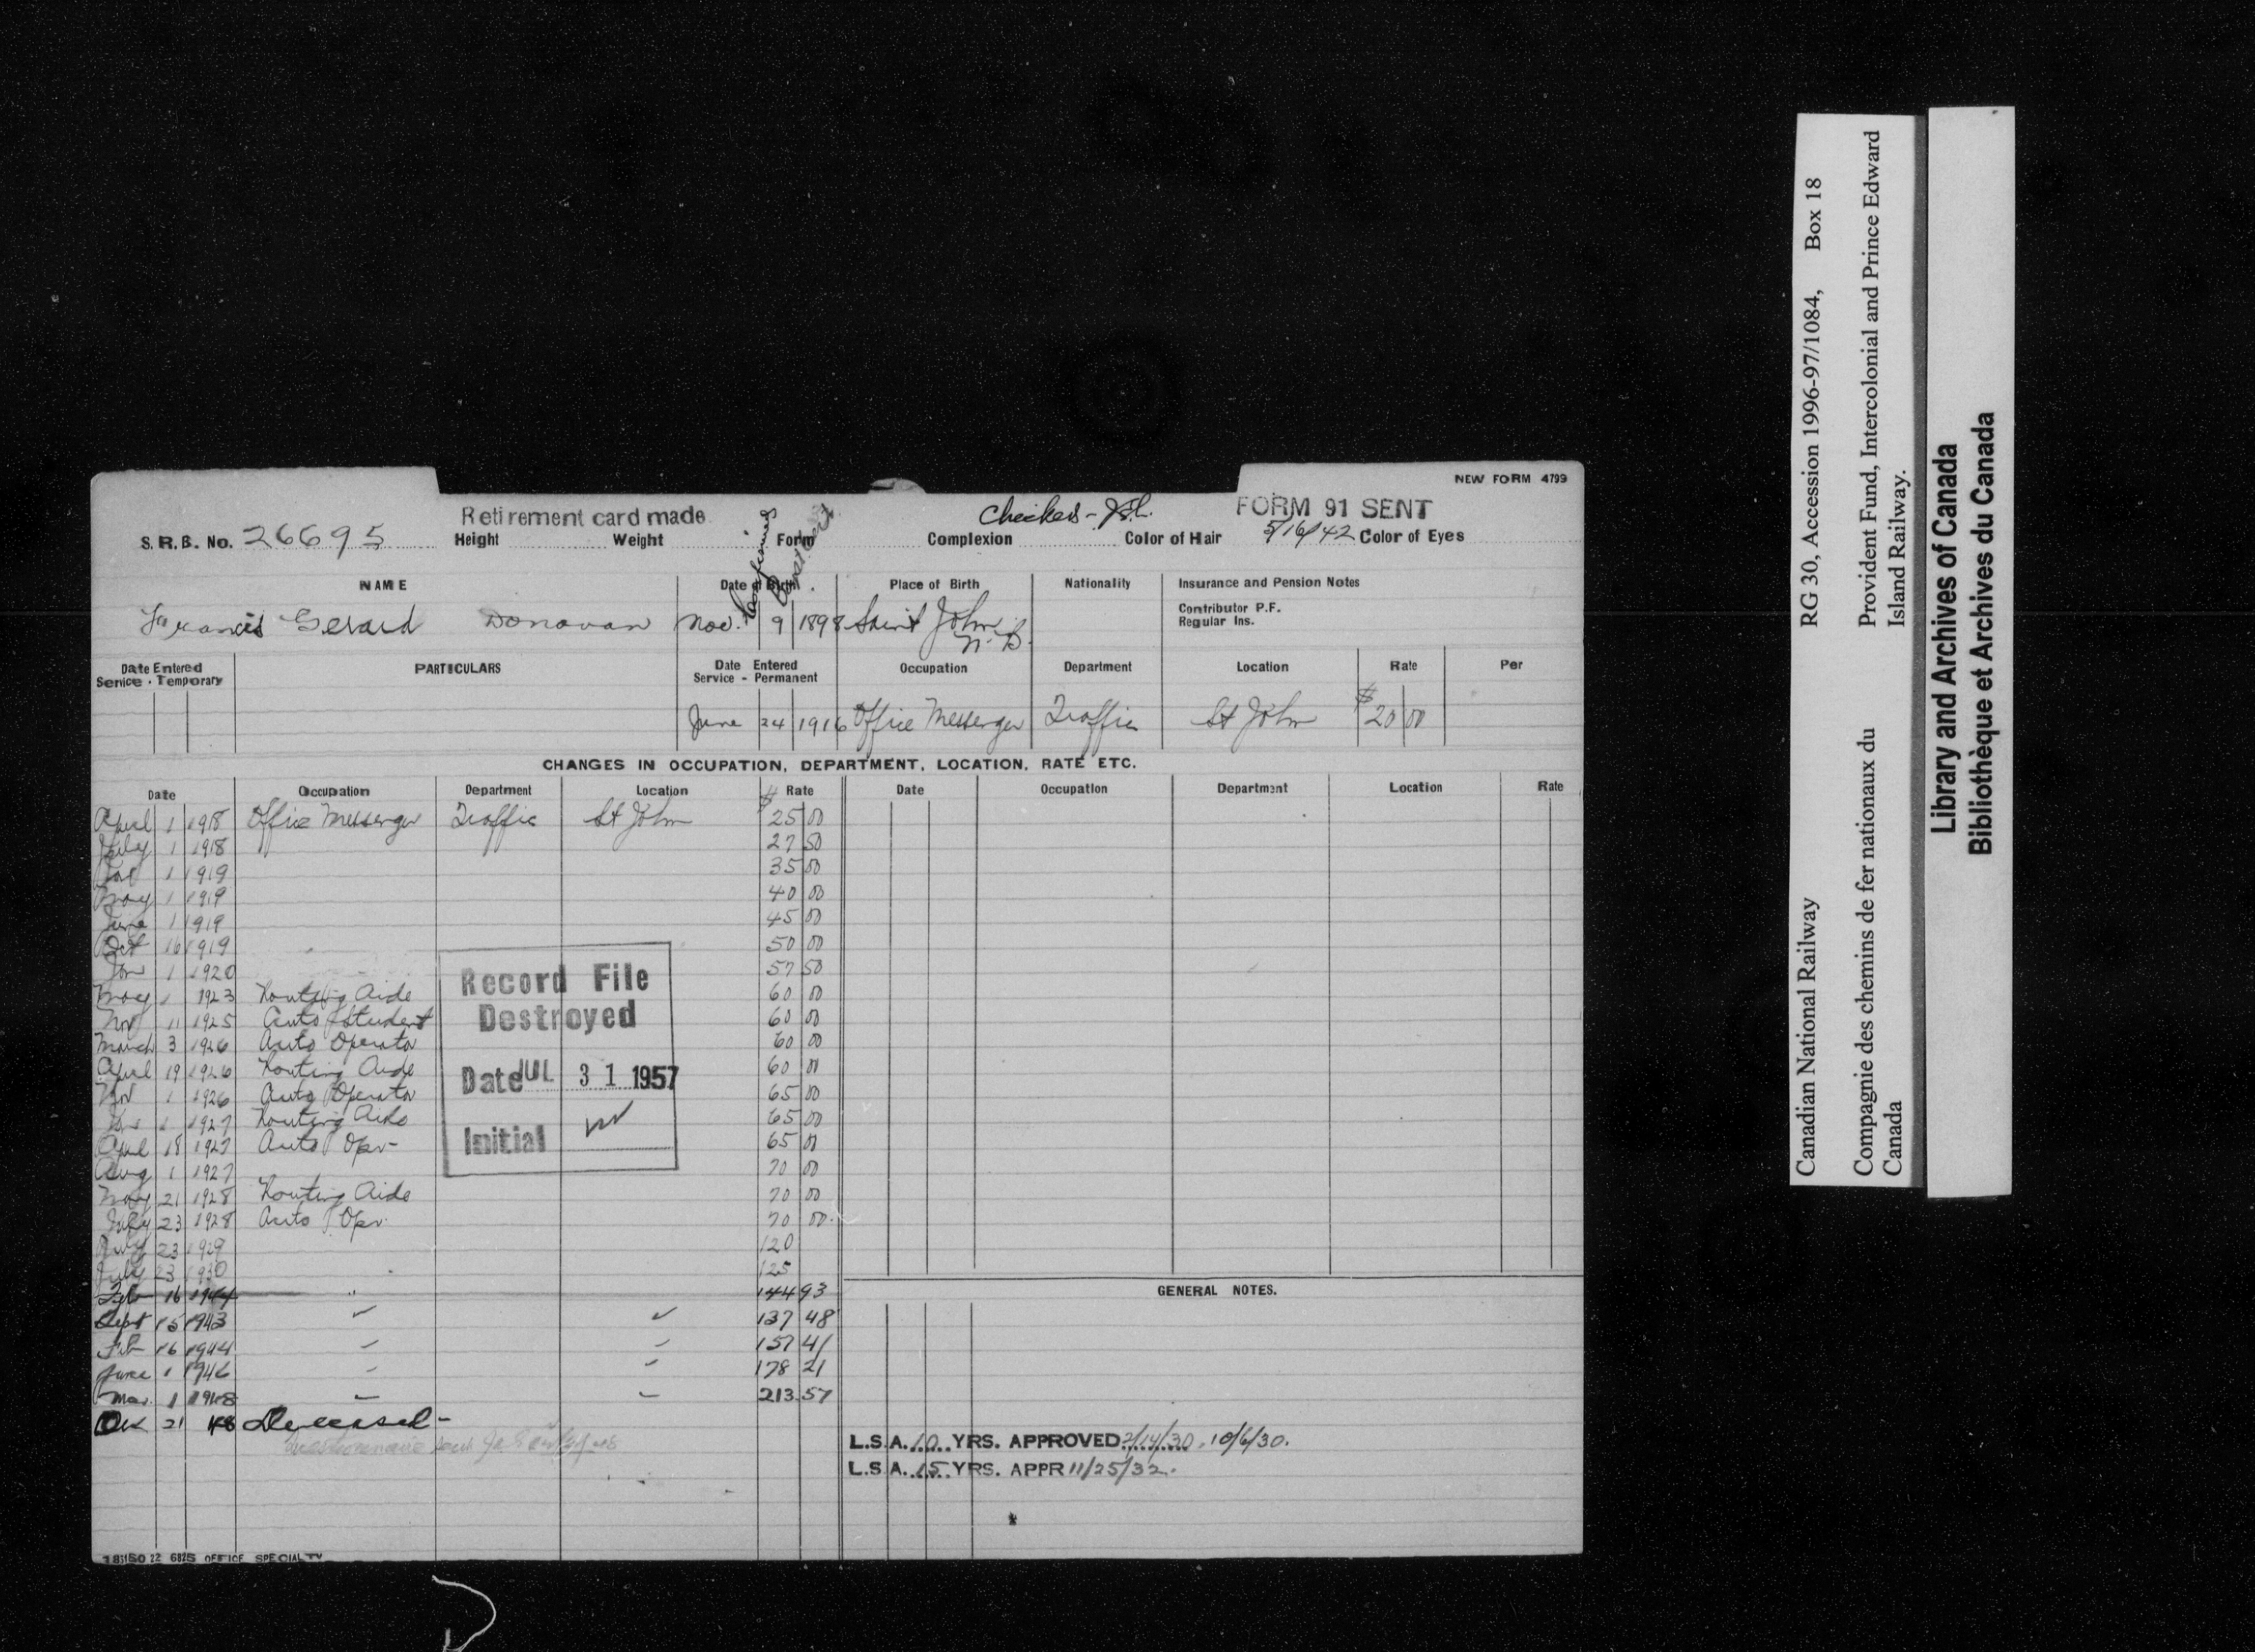 NEW FORM 4799
Retirement card made
Checked
FORM 91 SENT
S. R. B. No. 26695 Height Weight Form Complexion Color of Hair 5/16/42 Color of Eyes
NAME Date of Birth Place of Birth Nationality Insurance and Pension Notes
Contributor P.F.
Regular Ins.
Francis Gerard Donovan Nov. 9 1898 Saint John N.B.
Date Entered Service - Temporary PARTICULARS Date Entered Service - Permanent Occupation Department Location Rate Per
June 24 1916 Office Messenger Traffic St John $ 20 00
CHANGES IN OCCUPATION, DEPARTMENT, LOCATION, RATE ETC.
Date Occupation Department Location Rate Date Occupation Department Location Rate
April 1 1918 Office Messenger Traffic St John $ 25 00
July 1 1918 27 50
1 1919 35 00
May 1 1919 40 00
June 1 1919 45 00
Oct 16 1919 50 00
Jan 1 1920 57 50
May 1 1923 Routing Aide 60 00
Nov 11 1925 Auto Student 60 00
March 3 1926 Auto Operator 60 00
April 19 1926 Routing Aide 60 00
Nov 1 1926 Auto Operator 65 00
Jan 1 1927 Routing Aide 65 00
April 18 1927 Auto Opr 65 00
Aug 1 1927 70 00
May 21 1928 Routing Aide 70 00
July 23 1928 Auto Opr. 70 00
July 23 1929 120
July 23 1930 125
Feb 16 1944 " 144 93
Sept 15 1943 137 48
Feb 16 1944 157 41
June 1 1946 178 21
Mar. 1 1948 213.57
Dec 21 48 Deceased -
Record File
Destroyed
Date JUL 31 1957
Initial
GENERAL NOTES.
L.S.A. 10 YRS. APPROVED 2/14/30, 10/6/30.
L.S.A. 15 YRS. APPR 11/25/32.
OFFICE SPECIALTY
Canadian National Railway RG 30, Accession 1996-97/1084, Box 18
Compagnie des chemins de fer nationaux du Canada
Provident Fund, Intercolonial and Prince Edward Island Railway.
Library and Archives of Canada
Bibliothèque et Archives du Canada